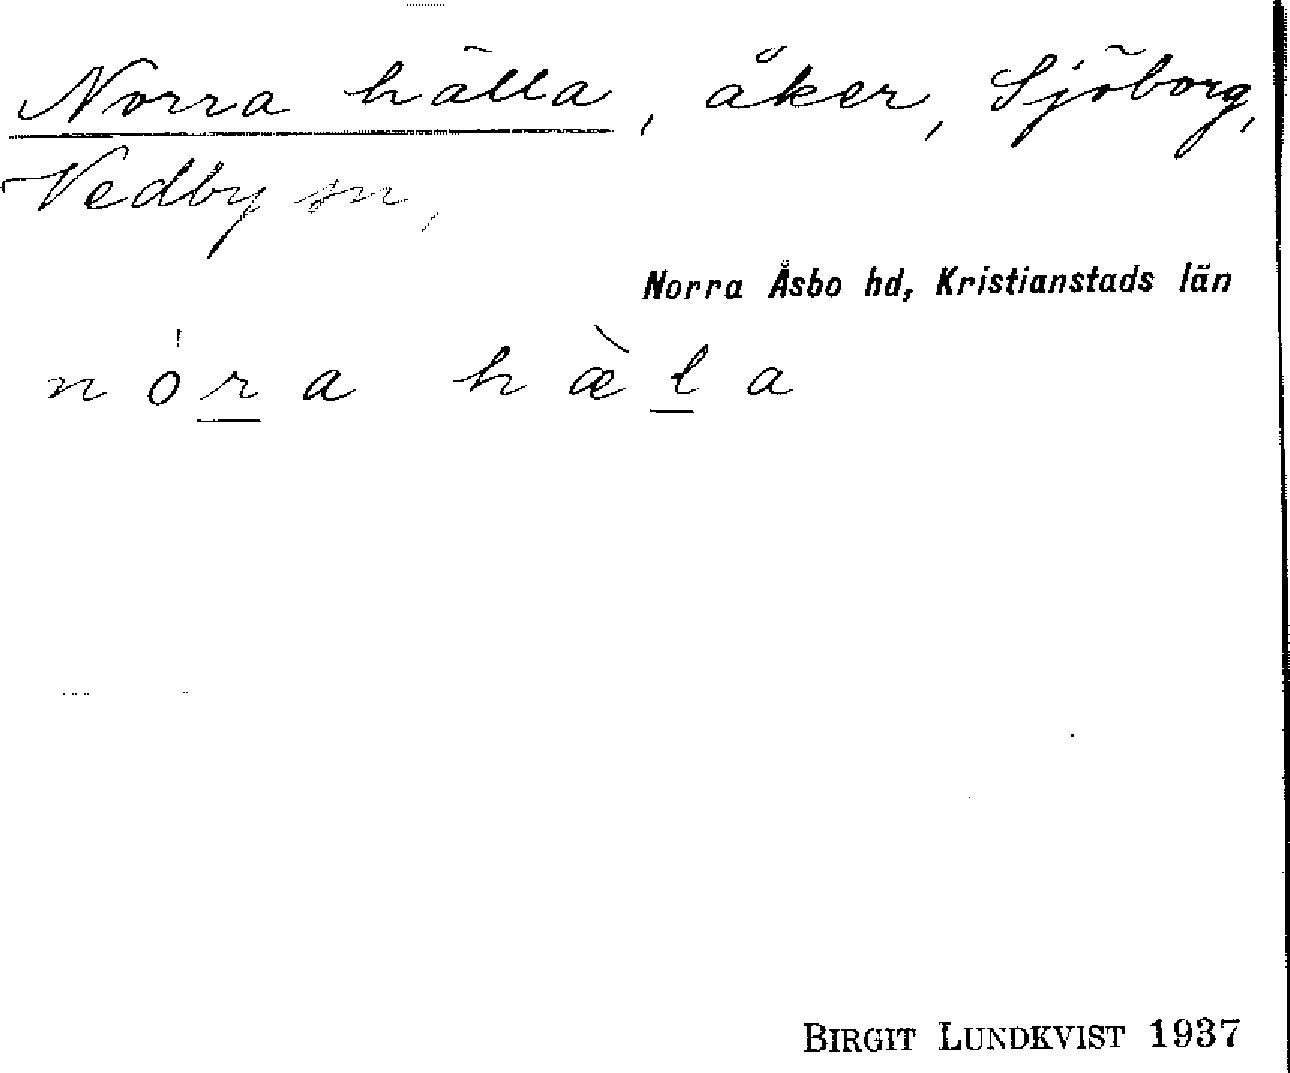 Norra hälla, åker, Sjöborg,
Vedby sn,
Norra Åsbo hd, Kristianstads län
nóra hæ̀la
BIRGIT LUNDKVIST 1937